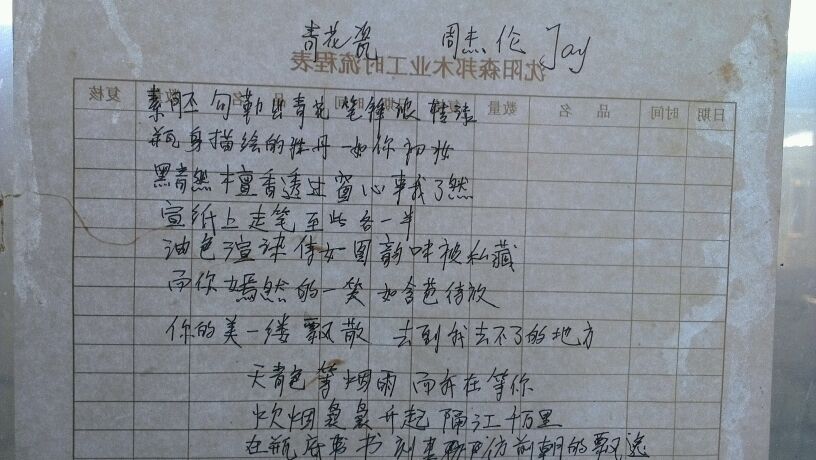 青花瓷 周杰伦 Jay
沈阳森邦木业工时流程表
日期 时间 品名 数量 复核 时间 品名 数量 复核
素胚勾勒出青花笔锋浓转淡
瓶身描绘的牡丹一如你初妆
黑青然檀香透过窗心事我了然
宣纸上走笔至此各一半
油色渲染侍女图韵味被私藏
而你嫣然的一笑如含苞待放
你的美一缕飘散 去到我去不了的地方
天青色等烟雨 而我在等你
炊烟袅袅升起 隔江千万里
在瓶底书刻隶仿前朝的飘逸